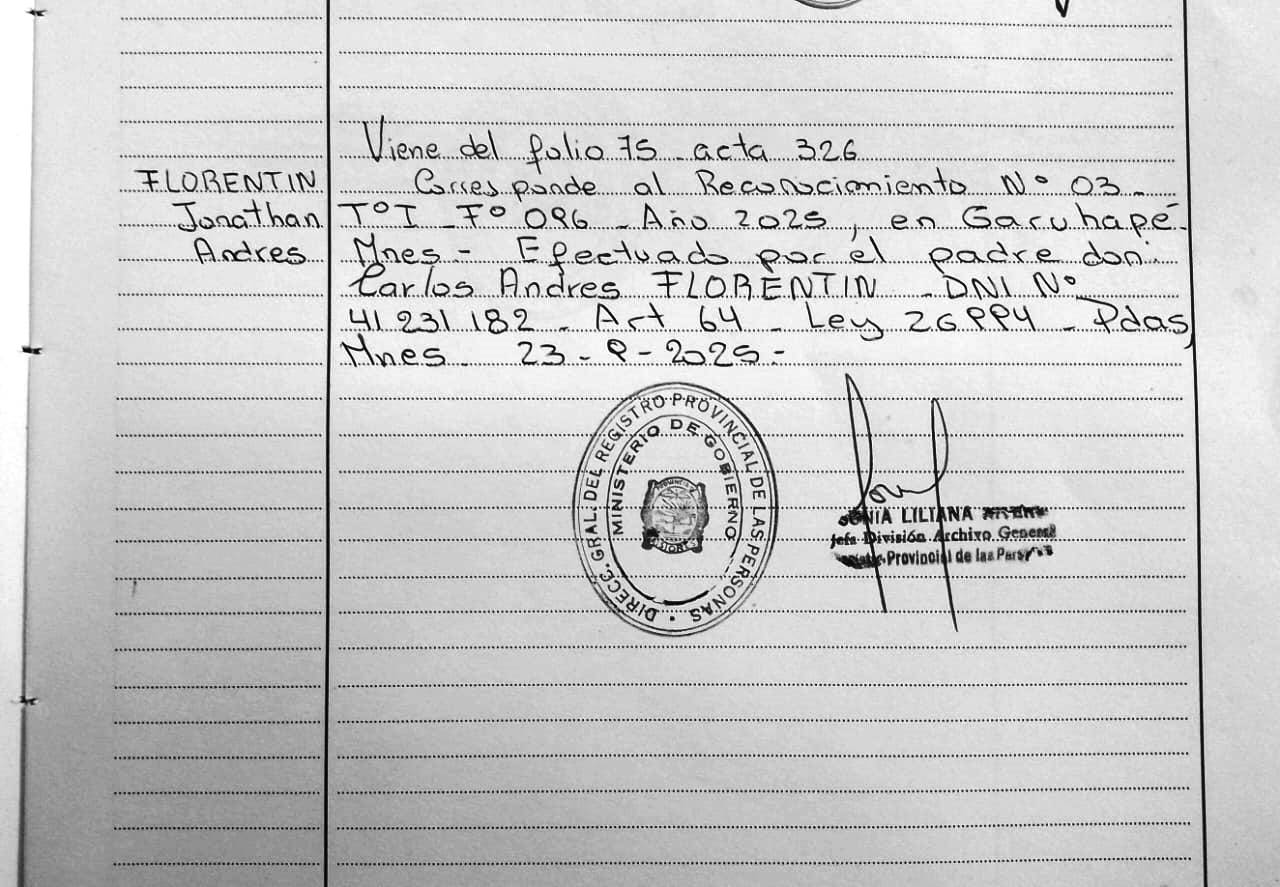 Viene del folio 75 - acta 326
FLORENTIN
Jonathan
Andres
Corresponde al Reconocimiento Nº 03 -
TºI - Fº 096 - Año 2025, en Garuhapé -
Mnes - Efectuado por el padre don:
Carlos Andres FLORENTIN - DNI Nº
41 231 182 - Art 64 - Ley 26994 - Pdas,
Mnes - 23 - 9 - 2025 -
DIRECC. GRAL. DEL REGISTRO PROVINCIAL DE LAS PERSONAS
MINISTERIO DE GOBIERNO
SONIA LILIANA
Jefe División Archivo General
Provincial de las Personas